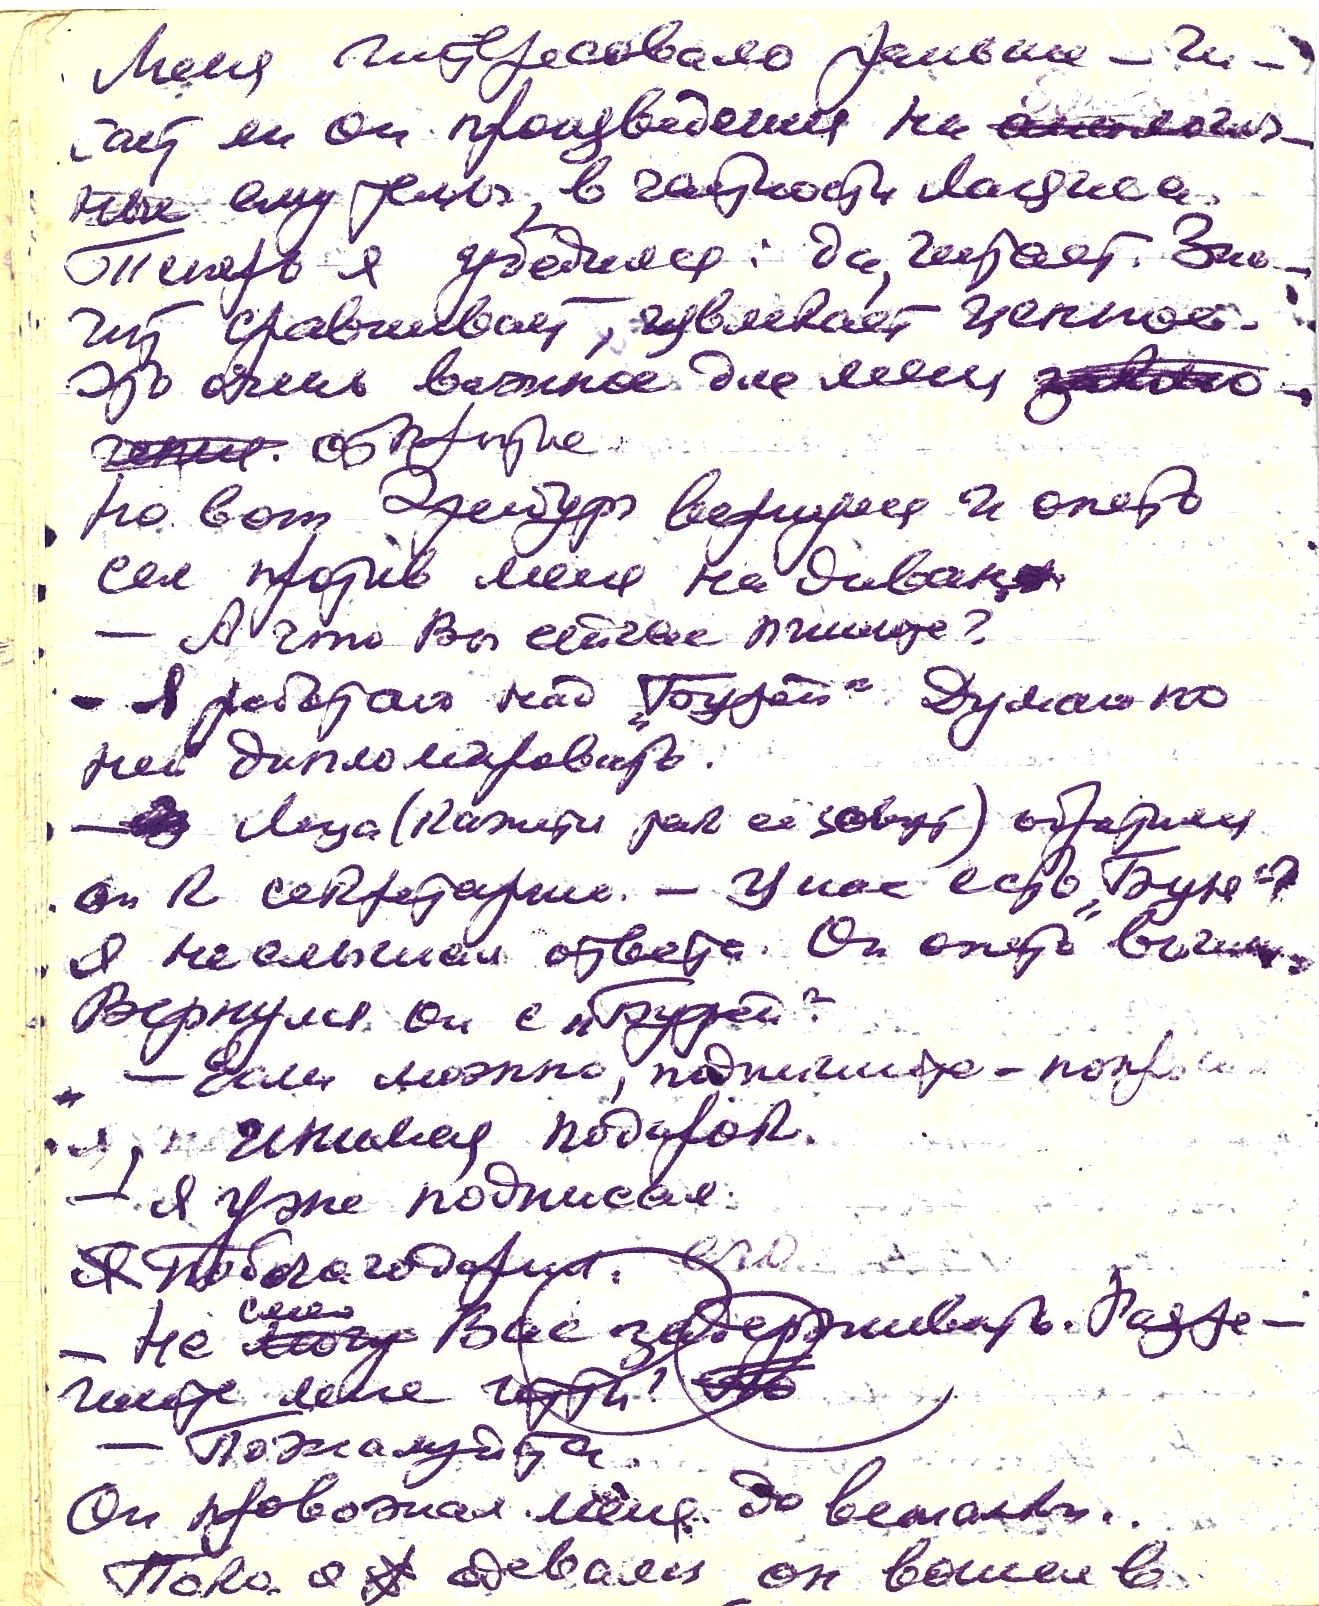 Меня интересовало раньше – чи-
тает ли он произведения на аналогич-
ные ему темы, в частности Лациса.
Теперь я убедился: да, читает. Зна-
чит сравнивает, извлекает ценное.
Это очень важное для меня заклю-
чение. открытие
Но вот Эренбург вернулся и опять
сел против меня на диван
– А что Вы сейчас пишите?
– Я работаю над „Бурей“. Думаю по
ней дипломировать.
– Люда (кажется так ее зовут) обратился
он к секретарше. – У нас есть „Буря“?
Я не слышал ответа. Он опять вышел.
Вернулся он с „Бурей“.
– Если можно, подпишите – попросил
я, принимая подарок.
– Я уже подписал.
Я Поблагодарил. его
– Не смею могу Вас задерживать. Разре-
шите мне идти?
– Пожалуйста.
Он провожал меня до вешалки..
Пока я одевался он вошел в